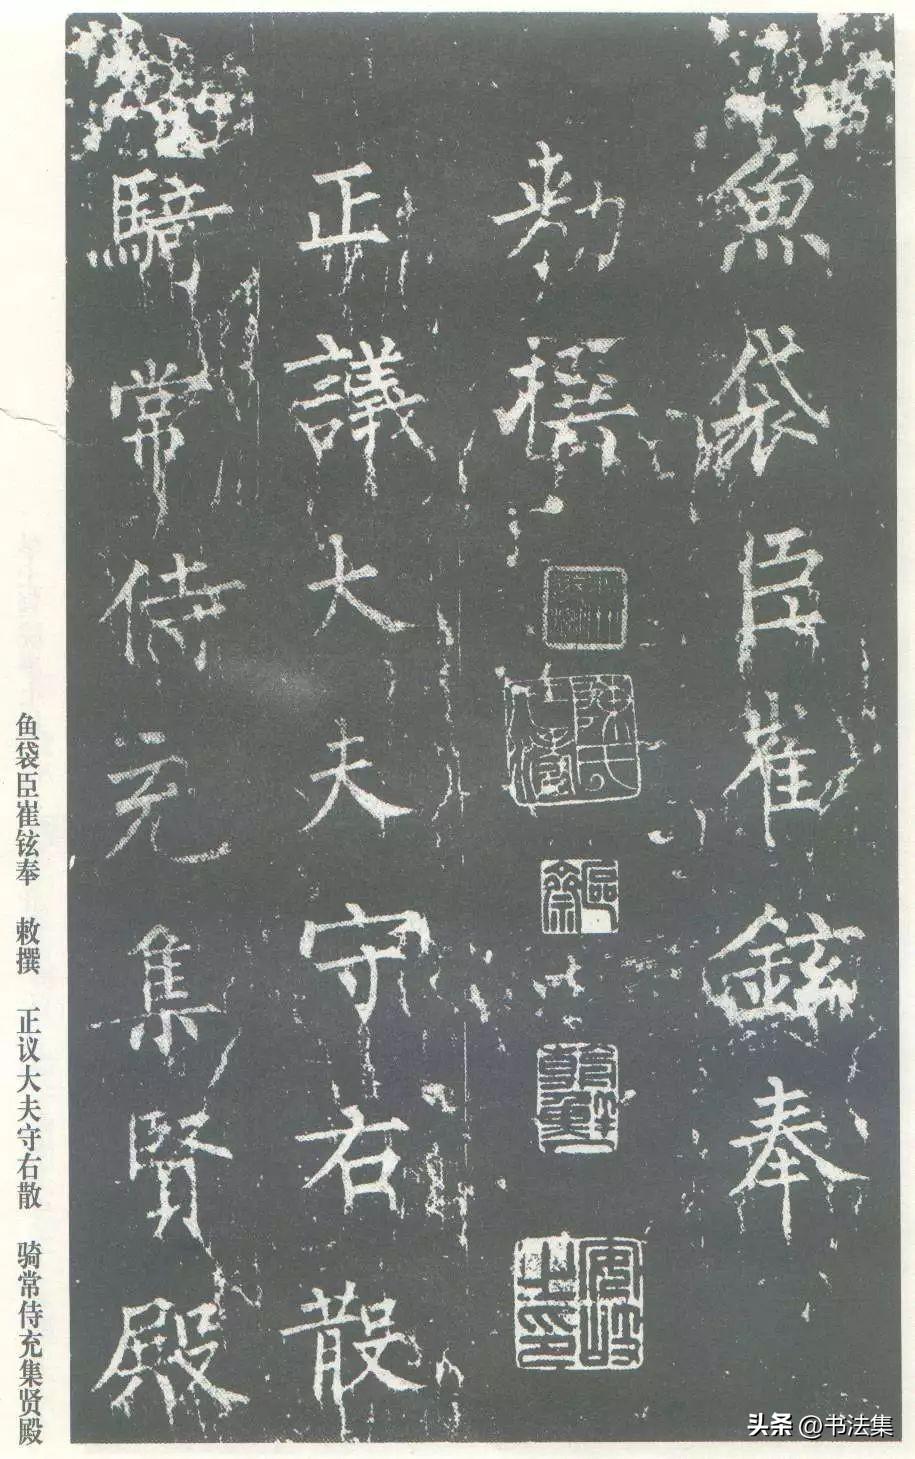 魚袋臣崔鉉奉
勅撰
正議大夫守右散
騎常侍充集賢殿
鱼袋臣崔铉奉 敕撰 正议大夫守右散 骑常侍充集贤殿
头条 @书法集